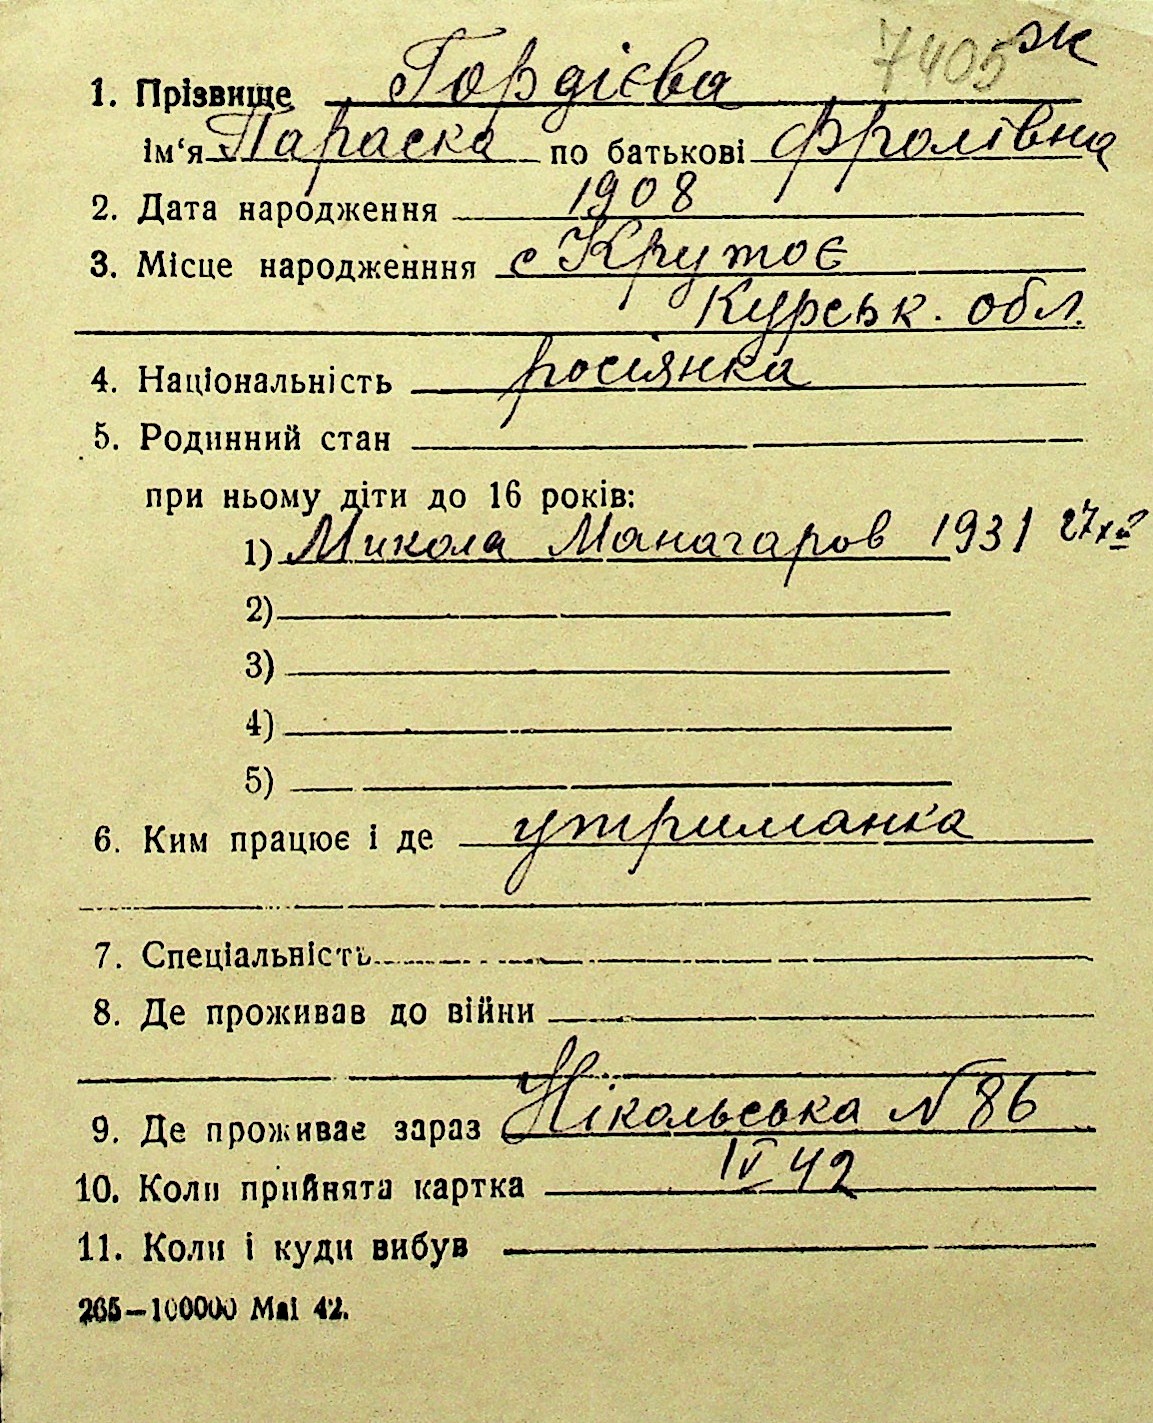 7405 ж
1. Прізвище Гордієва
ім‘я Параска по батькові Фролівна
2. Дата народження 1908
3. Місце народженння с Крутоє
Курськ. обл.
4. Національність росіянка
5. Родинний стан
при ньому діти до 16 років:
1) Микола Манагаров 1931 27
2)
3)
4)
5)
6. Ким працює і де утриманка
7. Спеціальність
8. Де проживав до війни
9. Де проживає зараз Нікольська N 86
10. Коли прийнята картка IV 42
11. Коли і куди вибув
265—100000 Маі 42.